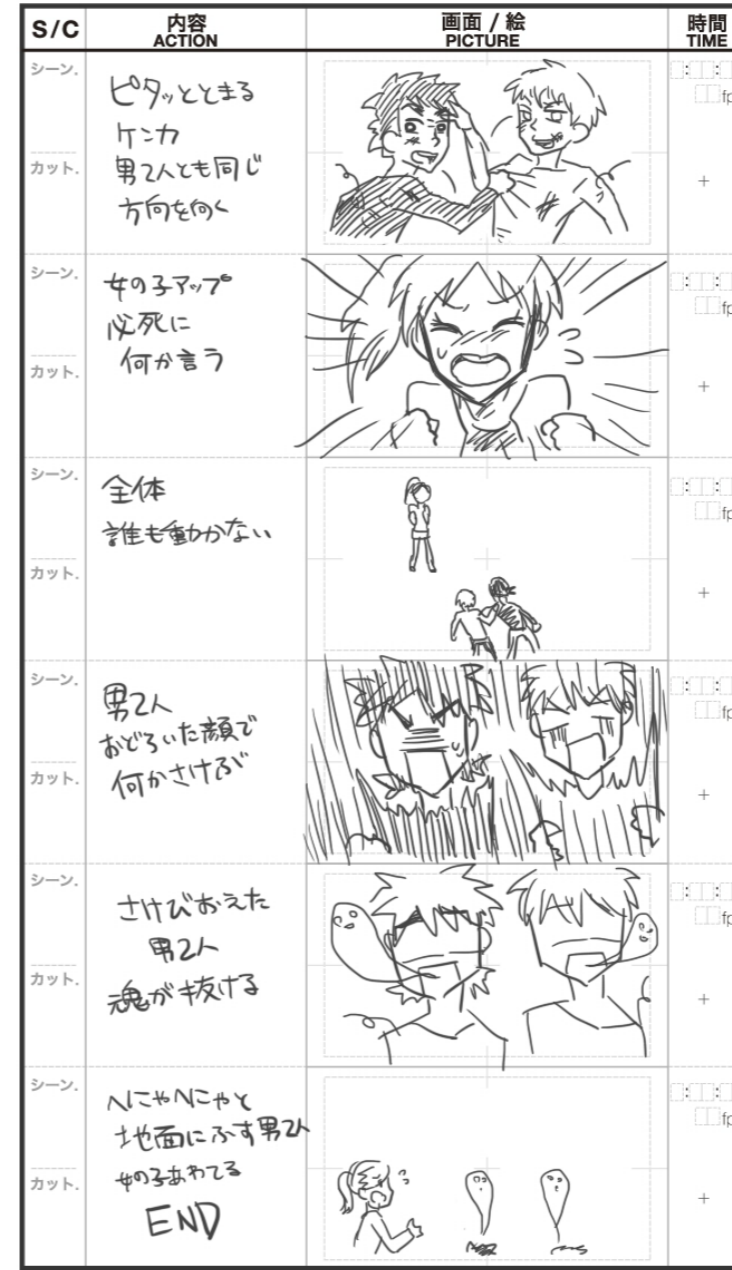 S/C
内容
ACTION
画面 / 絵
PICTURE
時間
TIME
シーン.
カット.
ピタッととまる
ケンカ
男2人とも同じ
方向を向く
: :
fp
+
シーン.
カット.
女の子アップ
必死に
何か言う
: :
fp
+
シーン.
カット.
全体
誰も動かない
: :
fp
+
シーン.
カット.
男2人
おどろいた顔で
何かさけぶ
: :
fp
+
シーン.
カット.
さけびおえた
男2人
魂が抜ける
: :
fp
+
シーン.
カット.
へにゃへにゃと
地面にふす男2人
女の子あわてる
END
: :
fp
+